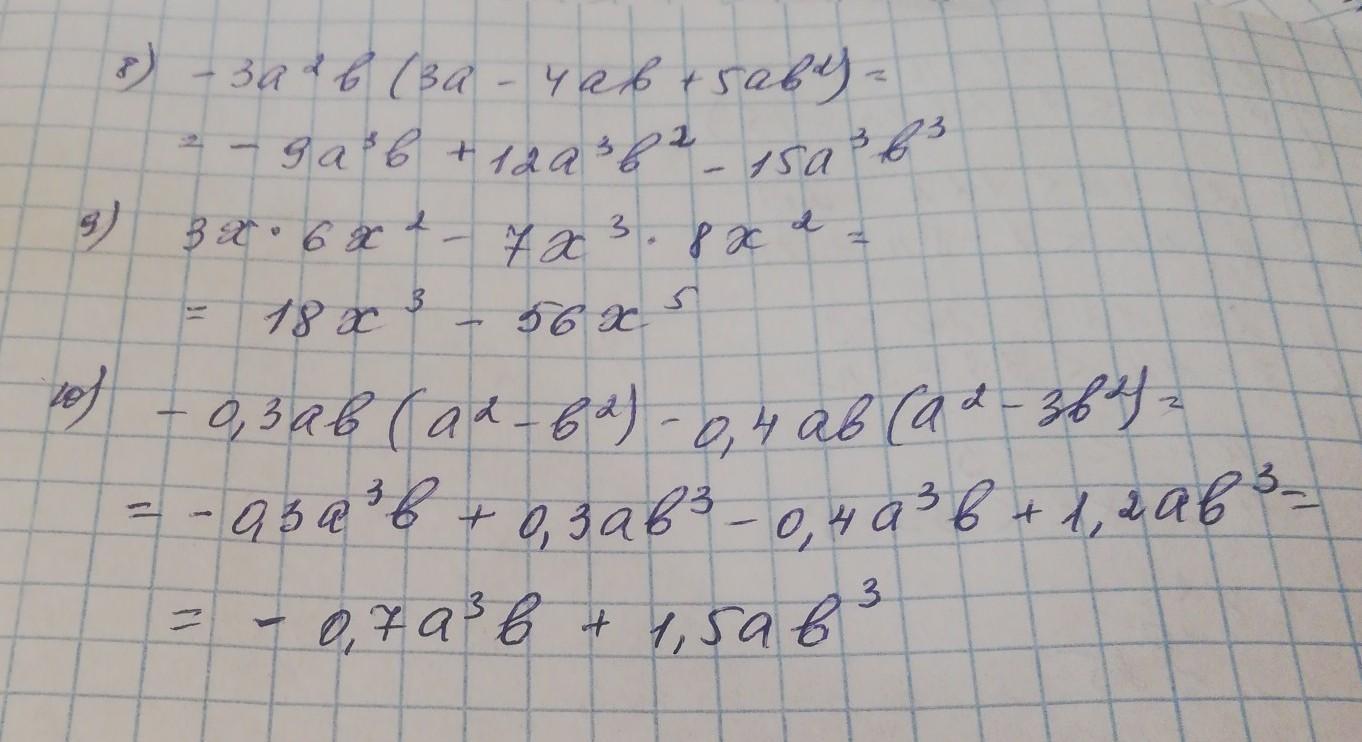 8) - 3a²b (3a - 4ab + 5ab²) =
= - 9a³b + 12a³b² - 15a³b³
9) 3x · 6x² - 7x³ · 8x² =
= 18x³ - 56x⁵
10) - 0,3ab (a² - b²) - 0,4ab (a² - 3b²) =
= - 0,3a³b + 0,3ab³ - 0,4a³b + 1,2ab³ =
= - 0,7a³b + 1,5ab³